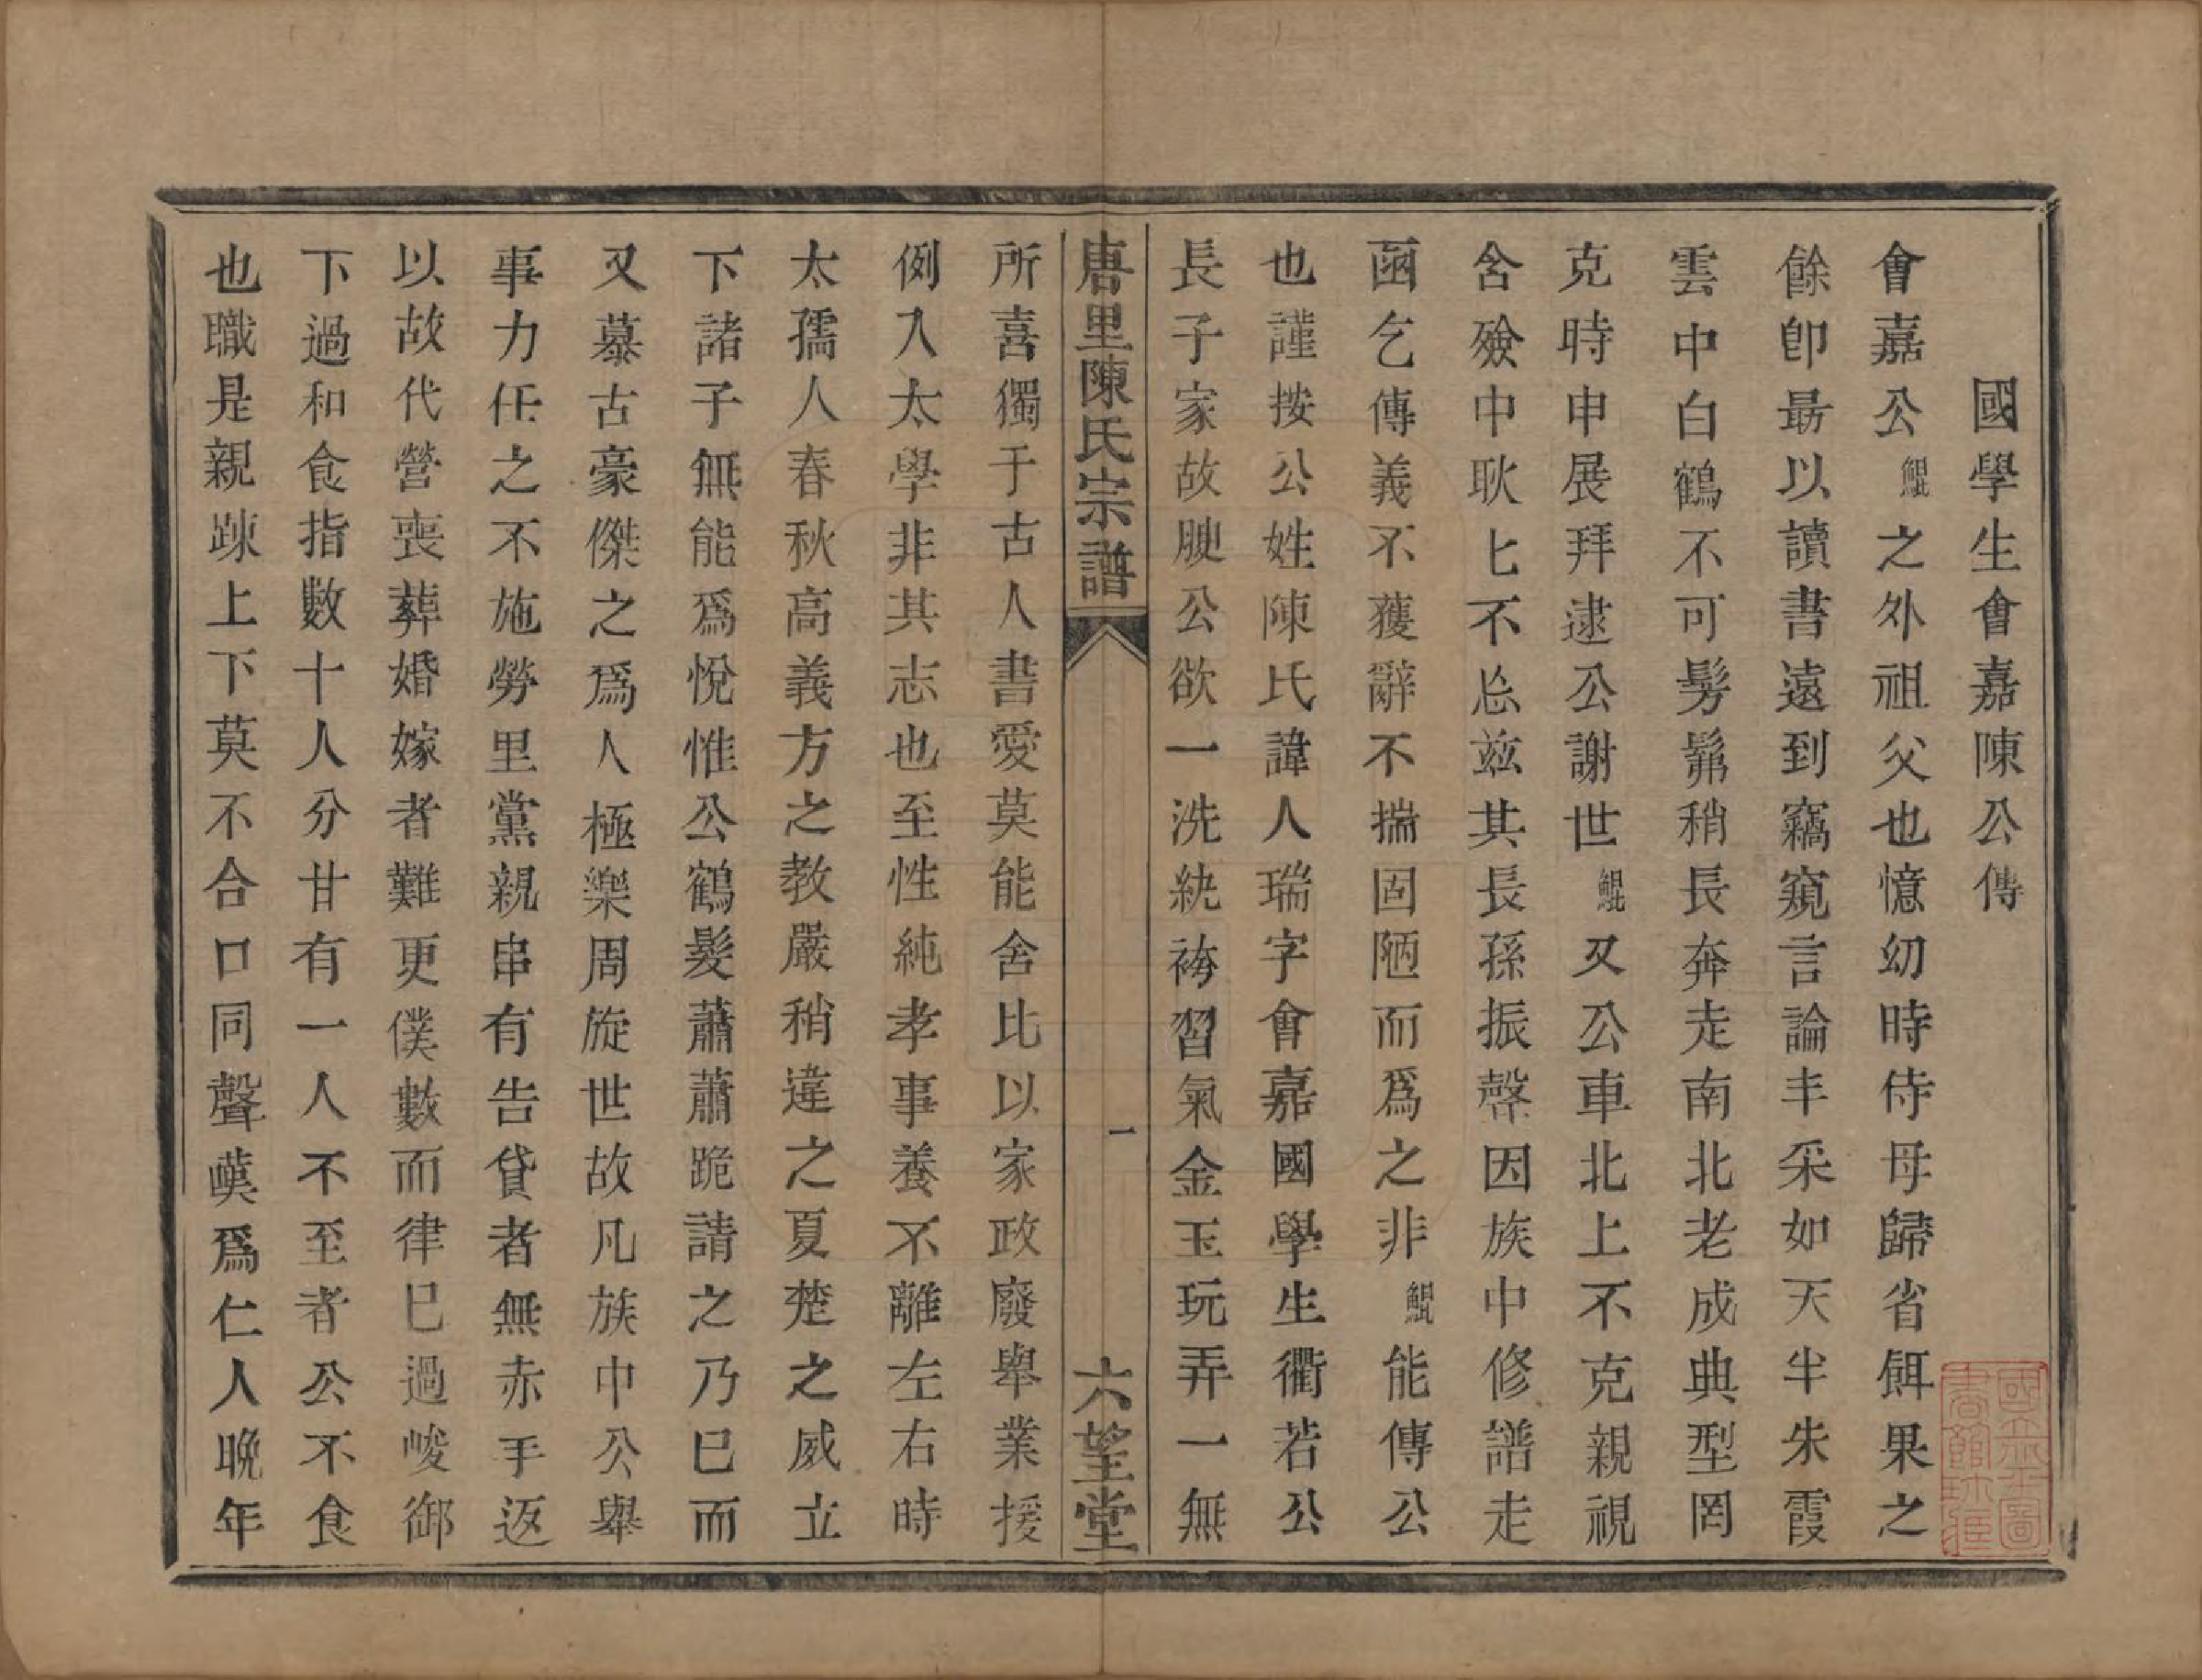 國學生會嘉陳公傳
會嘉公鯤之外祖父也憶幼時侍母歸省餌果之
餘卽最以讀書遠到竊窺言論丰采如天半朱霞
雲中白鶴不可髣髴稍長奔走南北老成典型罔
克時申展拜逮公謝世鯤又公車北上不克親視
含殮中耿匕不忘茲其長孫振聲因族中修譜走
函乞傳義不獲辭不揣固陋而爲之非鯤能傳公
也謹按公姓陳氏諱人瑞字會嘉國學生衢若公
長子家故腴公欲一洗紈袴習氣金玉玩弄一無
唐里陳氏宗譜
一
六望堂
所喜獨于古人書愛莫能舍比以家政廢舉業援
例入太學非其志也至性純孝事養不離左右時
太孺人春秋高義方之教嚴稍違之夏楚之威立
下諸子無能爲悅惟公鶴髮蕭蕭跪請之乃已而
又慕古豪傑之爲人極樂周旋世故凡族中公舉
事力任之不施勞里黨親串有告貸者無赤手返
以故代營喪葬婚嫁者難更僕數而律已過峻御
下過和食指數十人分甘有一人不至者公不食
也職是親踈上下莫不合口同聲嘆爲仁人晚年
國立北圖
書館珍藏